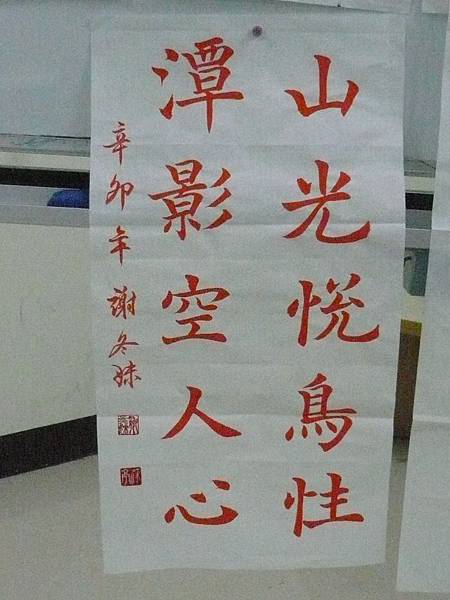 山光悅鳥性
潭影空人心
辛卯年 謝冬妹